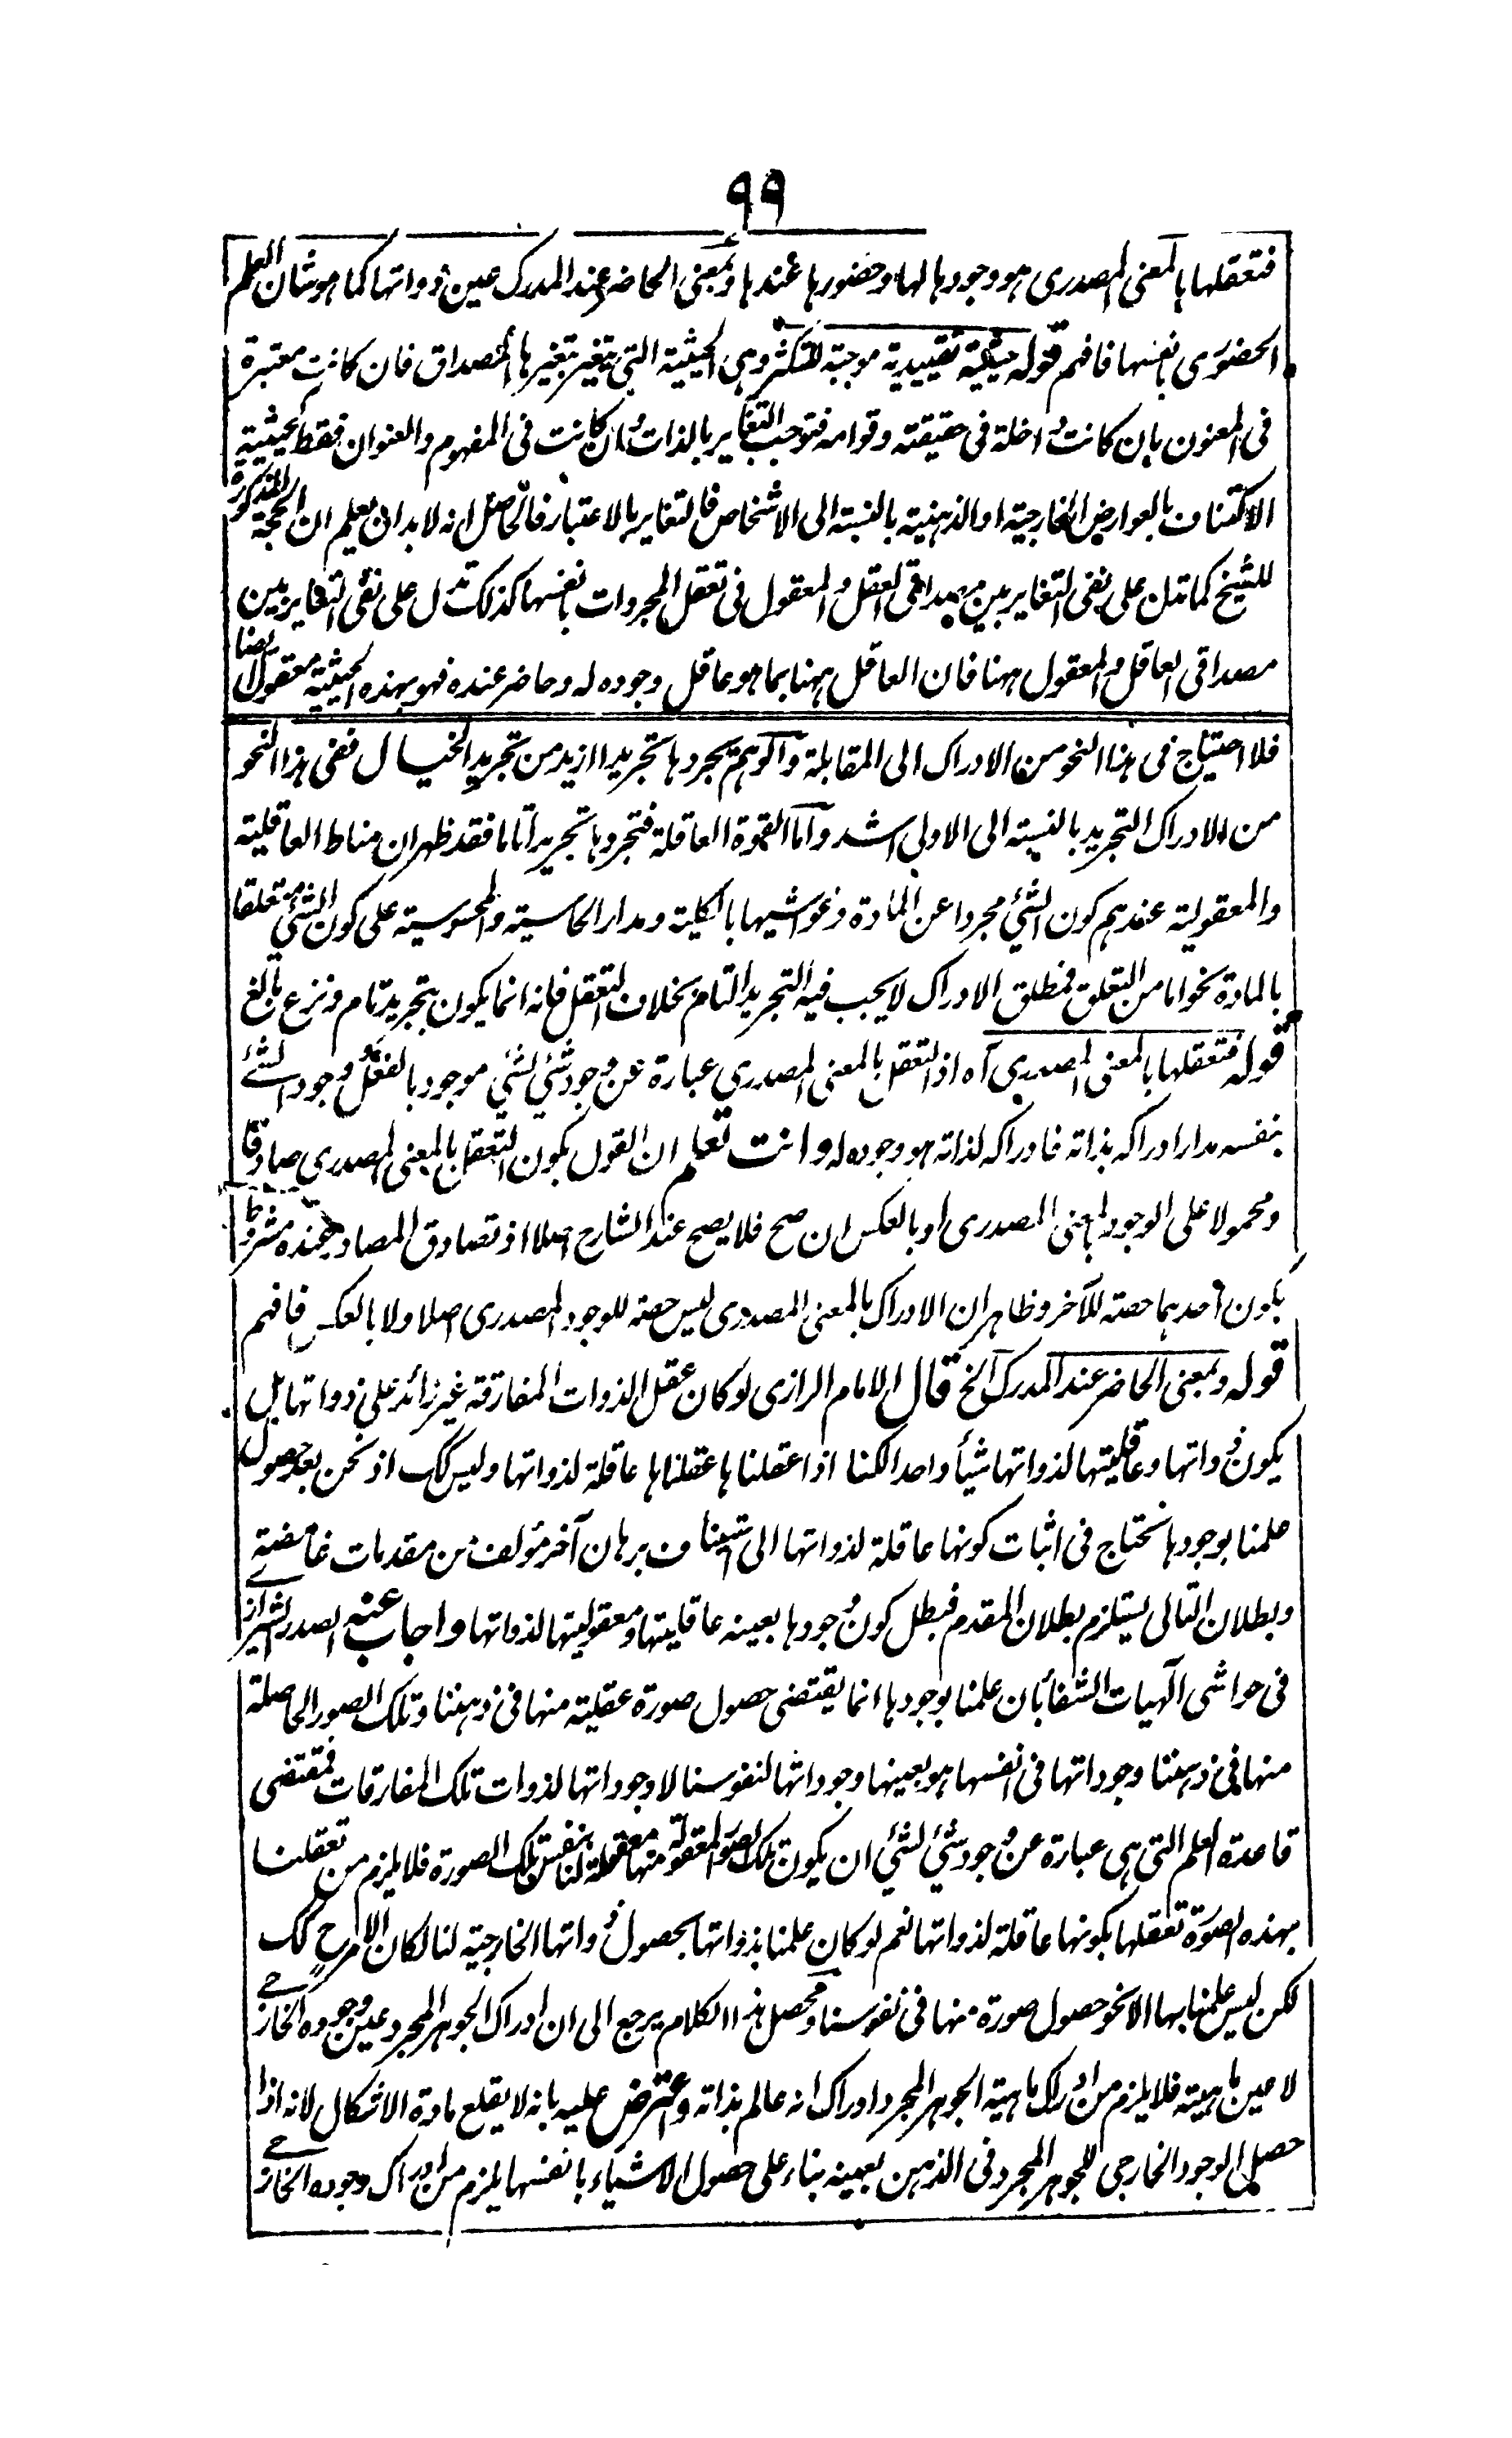 ٩٩
فتعقلها بالمعنى المصدرى هو وجودها لها وحضورها عندها وبمعنى الحاضر عند المدرك عين ذواتها كما هو شان العلم
الحضورى بانفسها فافهم قوله حيثية تقييدية موجبة للتكثر وهى الحيثية التى يتغير بتغيرها المصداق فان كانت معتبرة
فى المعنون بان كانت داخلة فى حقيقته وقوامه فتوجب التغاير بالذات وان كانت فى المفهوم والعنوان فقط كحيثية
الاكتناف بالعوارض الخارجية او الذهنية بالنسبة الى الاشخاص فالتغاير بالاعتبار فالحاصل انه لا بد ان يعلم ان الحجة المذكورة
للشيخ كما تدل على نفى التغاير بين مصداقى العقل والمعقول فى تعقل المجردات بانفسها كذلك تدل على نفى التغاير بين
مصداقى العاقل والمعقول ههنا فان العاقل ههنا بما هو عاقل وجوده له وحاضر عنده فهو بهذه الحيثية معقول ايضا
فلا احتياج فى هذا النحو من الادراك الى المقابلة والوهم يجردها تجريدا ازيد من تجريد الخيال ففى هذا النحو
من الادراك التجريد بالنسبة الى الاولى اشد واما القوة العاقلة فتجردها تجريدا تاما فقد ظهر ان مناط العاقلية
والمعقولية عندهم كون الشئ مجردا عن المادة وغواشيها بالكلية ومدار الحاسية والمحسوسية على كون الشئ متعلقا
بالمادة نحوا ما من التعلق فمطلق الادراك لا يجب فيه التجريد التام بخلاف التعقل فانه انما يكون بتجريد تام ونزع بالغ
قوله فتعقلها بالمعنى المصدرى آه اذ التعقل بالمعنى المصدرى عبارة عن وجود شئ لشئ موجود بالفعل ووجود الشئ
بنفسه مدار ادراكه بذاته فادراكه لذاته هو وجوده له وانت تعلم ان القول بكون التعقل بالمعنى المصدرى صادقا
ومحمولا على الوجود بالمعنى المصدرى او بالعكس ان صح فلا يصح عند الشارح اصلا اذ تصادق المصادر عنده مشروط
بكون احدهما حصة للآخر وظاهر ان الادراك بالمعنى المصدرى ليس حصة للوجود المصدرى اصلا ولا بالعكس فافهم
قوله وبمعنى الحاضر عند المدرك الخ قال الامام الرازى لو كان عقل الذوات المفارقة غير زائد على ذواتها بل
يكون ذواتها وعاقليتها لذواتها شيأ واحدا لكنا اذا عقلناها عقلناها عاقلة لذواتها وليس كك اذ نحن بعد حصول
علمنا بوجودها نحتاج فى اثبات كونها عاقلة لذواتها الى استيناف برهان آخر مؤلف من مقدمات غامضة
وبطلان التالى يستلزم بطلان المقدم فبطل كون وجودها بعينه عاقليتها ومعقوليتها لذواتها واجاب عنه الصدر الشيرازى
فى حواشى الٓهيات الشفا بان علمنا بوجودها انما يقتضى حصول صورة عقلية منها فى ذهننا وتلك الصور الحاصلة
منها فى ذهننا وجوداتها فى انفسها هو بعينها وجوداتها لنفوسنا لا وجوداتها لذوات تلك المفارقات فمقتضى
قاعدة العلم التى هى عبارة عن وجود شئ لشئ ان يكون تلك الصور المعقولة منها معقولة لنا بنفس تلك الصورة فلا يلزم من تعقلنا
بهذه الصورة تعقلها بكونها عاقلة لذواتها نعم لو كان علمنا بذواتها بحصول ذواتها الخارجية لنا لكان الامر ح كك
لكن ليس علمنا بها الا نحو حصول صورة منها فى نفوسنا ومحصل هذا الكلام يرجع الى ان ادراك الجوهر المجرد عين وجوده الخارجى
لا عين ماهيته فلا يلزم من ادراك ماهية الجوهر المجرد ادراك انه عالم بذاته واعترض عليه بانه لا يقلع مادة الاشكال لانه اذا
حصل الوجود الخارجى للجوهر المجرد فى الذهن بعينه بناء على حصول الاشياء بانفسها يلزم من ادراك وجوده الخارجى